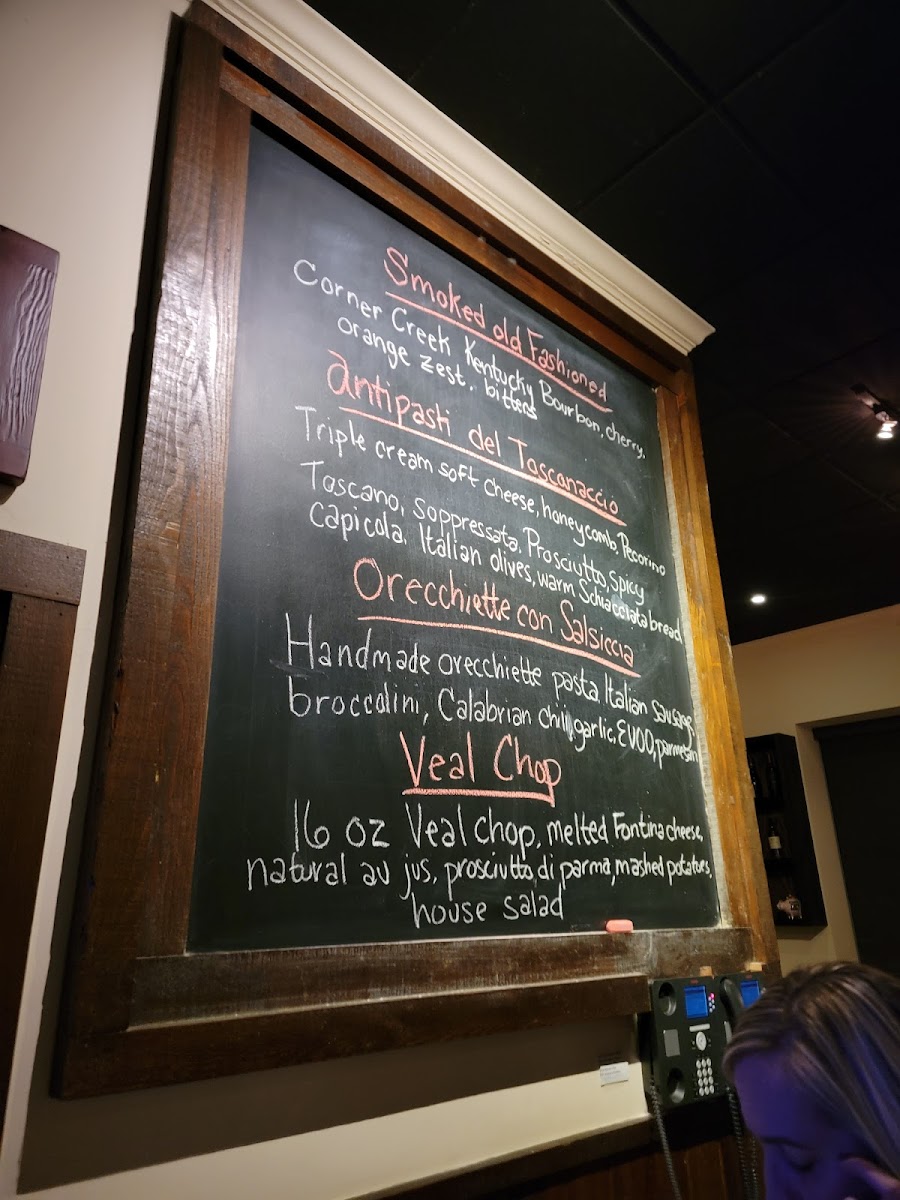 Smoked old Fashioned
Corner Creek Kentucky Bourbon, cherry,
orange zest, bitters
Antipasti del Toscanaccio
Triple cream soft cheese, honeycomb, Pecorino
Toscano, Soppressata, Prosciutto, Spicy
Capicola, Italian olives, warm Schiacciata bread
Orecchiette con Salsiccia
Handmade orecchiette pasta, Italian sausage,
broccolini, Calabrian chili, garlic, EVOO, parmesan
Veal Chop
16 oz Veal chop, melted Fontina cheese,
natural au jus, prosciutto di parma, mashed potatoes,
house salad